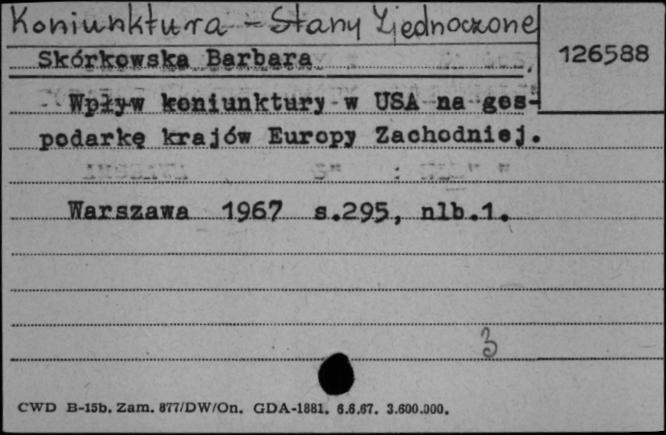 Koniunktura - Stany Zjednoczone
Skórkowska Barbara
126588
Wpływ koniunktury w USA na gos-
podarkę krajów Europy Zachodniej.
Warszawa 1967 s.295, nlb.1.
3
CWD B-15b. Zam. 877/DW/On. GDA-1881. 6.6.67. 3.600.000.